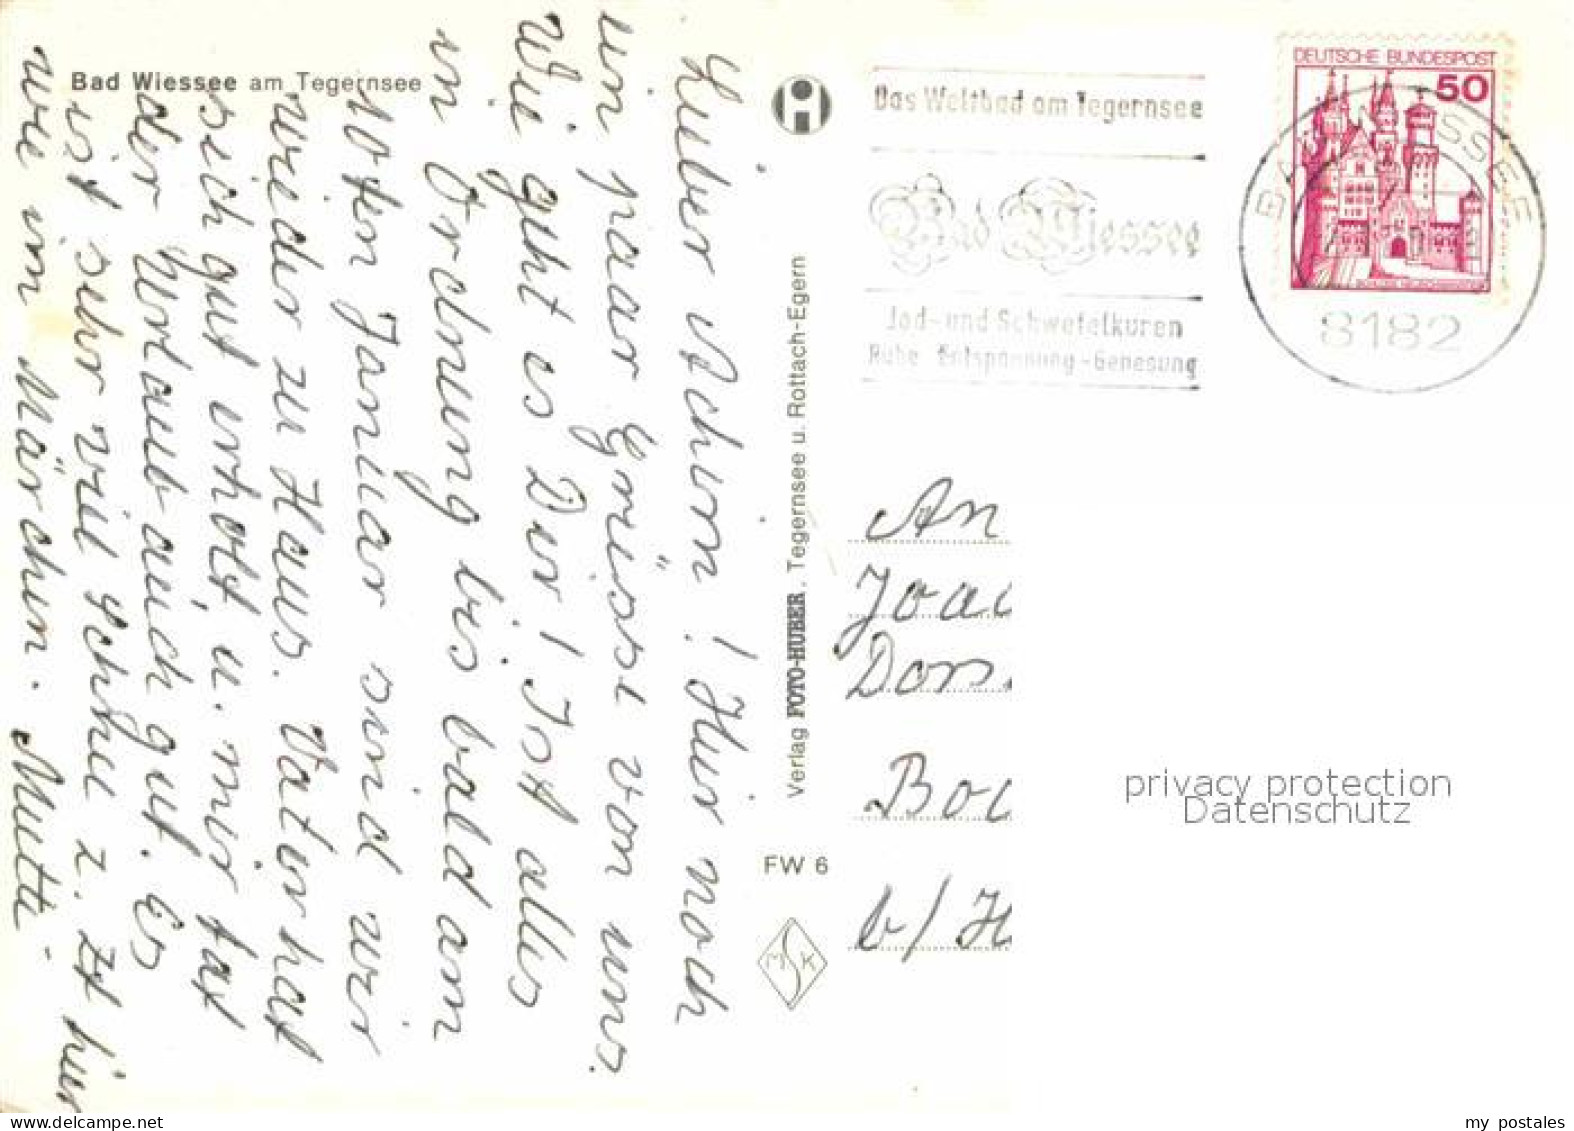 Bad Wiessee am Tegernsee
Lieber Achim! Hier noch
ein paar Grüsse von uns.
Wie geht es Dir! Ist alles
in Ordnung bis bald am
10ten Januar sind wir
wieder zu Haus. Vater hat
sich gut erholt, u. mir tat
der Urlaub auch gut. Es
ist sehr viel Schnee z. Zt hier
wie im Märchen. Mutti-
Verlag FOTO-HUBER, Tegernsee u. Rottach-Egern
FW 6
MSK
Das Weltbad am Tegernsee
Bad Wiessee
Jod- und Schwefelkuren
Ruhe Entspannung-Genesung
DEUTSCHE BUNDESPOST
50
BAD WIESSEE
8182
An
Joac
Dors
Boc
b/H
privacy protection
Datenschutz
my postales